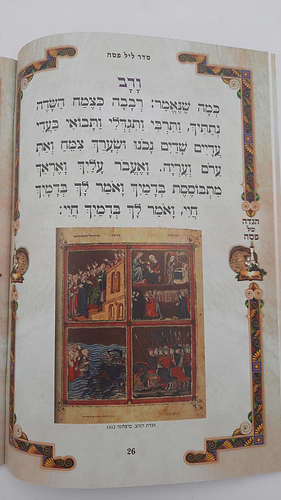 סדר ליל פסח
וָרָב
כְּמָה שֶׁנֶּאֱמַר: רְבָבָה כְּצֶמַח הַשָּׂדֶה
נְתַתִּיךְ, וַתִּרְבִּי וַתִּגְדְּלִי וַתָּבוֹאִי בַּעֲדִי
עֲדָיִים שָׁדַיִם נָכֹנוּ וּשְׂעָרֵךְ צִמֵּחַ וְאַתְּ
עֵרֹם וְעֶרְיָה. וָאֶעֱבֹר עָלַיִךְ וָאֶרְאֵךְ
מִתְבּוֹסֶסֶת בְּדָמָיִךְ וָאֹמַר לָךְ בְּדָמַיִךְ
חֲיִי, וָאֹמַר לָךְ בְּדָמַיִךְ חֲיִי:
הגדה
של
פסח
הגדת הזהב, ברצלונה
26